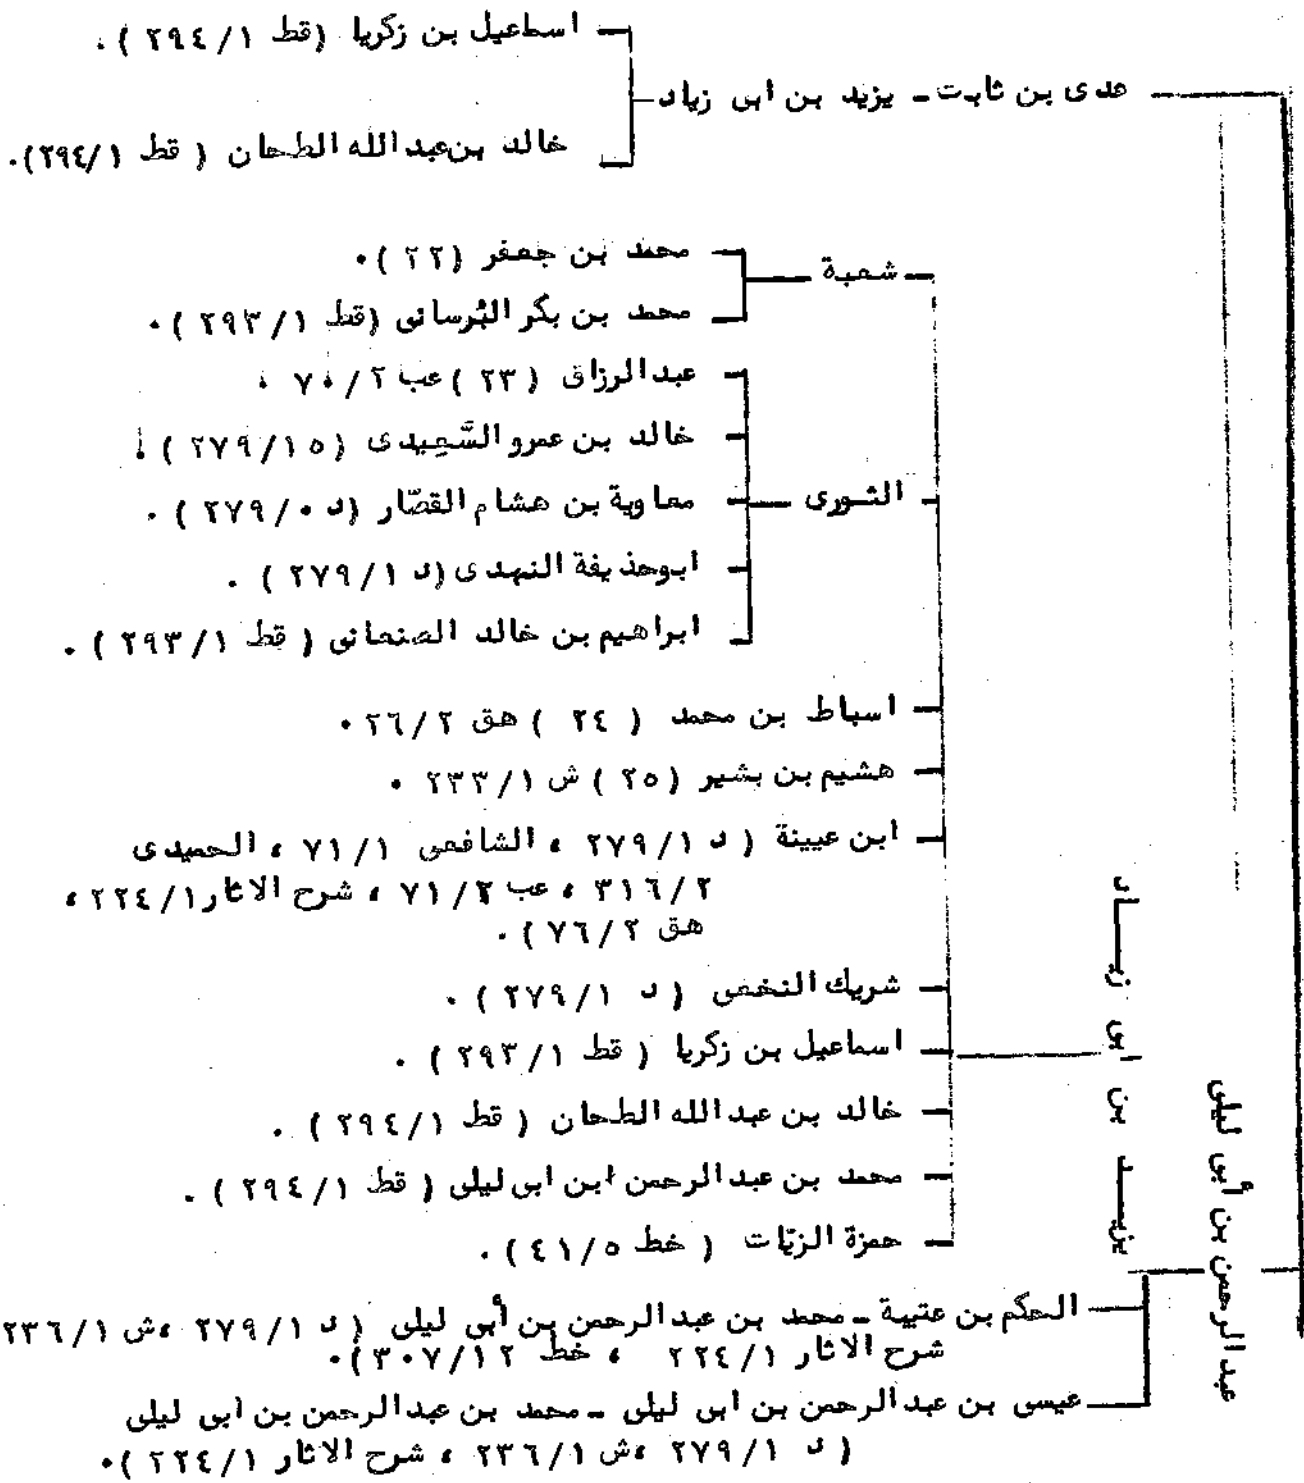 اسماعيل بن زكريا (قط ٢٩٤/١).
عدى بن ثابت ـ يزيد بن ابى زياد
خالد بن عبدالله الطحان (قط ٢٩٤/١).
محمد بن جعفر (٢٢).
شعبة
محمد بن بكر البُرسانى (قط ٢٩٣/١).
عبدالرزاق (٢٣) عب ٧٠/٢.
خالد بن عمرو السَّعِيدى (٢٧٩/١٥).
الثورى
معاوية بن هشام القصّار (د ٢٧٩/٠).
ابوحذيفة النهدى (د ٢٧٩/١).
ابراهيم بن خالد الصنعانى (قط ٢٩٣/١).
اسباط بن محمد (٢٤) هق ٢٦/٢.
هشيم بن بشير (٢٥) ش ٢٣٣/١.
ابن عيينة (د ٢٧٩/١، الشافعى ٧١/١، الحميدى
٣١٦/٢، عب ٧١/٢، شرح الاثار ٢٢٤/١،
هق ٧٦/٢).
شريك النخعى (د ٢٧٩/١).
اسماعيل بن زكريا (قط ٢٩٣/١).
خالد بن عبدالله الطحان (قط ٢٩٤/١).
محمد بن عبدالرحمن ابن ابى ليلى (قط ٢٩٤/١).
حمزة الزيّات (خط ٤١/٥).
يزيد بن ابى زياد
عبدالرحمن بن أبى ليلى
الحكم بن عتيبة ـ محمد بن عبدالرحمن بن أبى ليلى (د ٢٧٩/١، ش ٢٣٦/١
شرح الاثار ٢٢٤/١، خط ٣٠٧/١٢).
عيسى بن عبدالرحمن بن ابى ليلى ـ محمد بن عبدالرحمن بن ابى ليلى
(د ٢٧٩/١، ش ٢٣٦/١، شرح الاثار ٢٢٤/١).